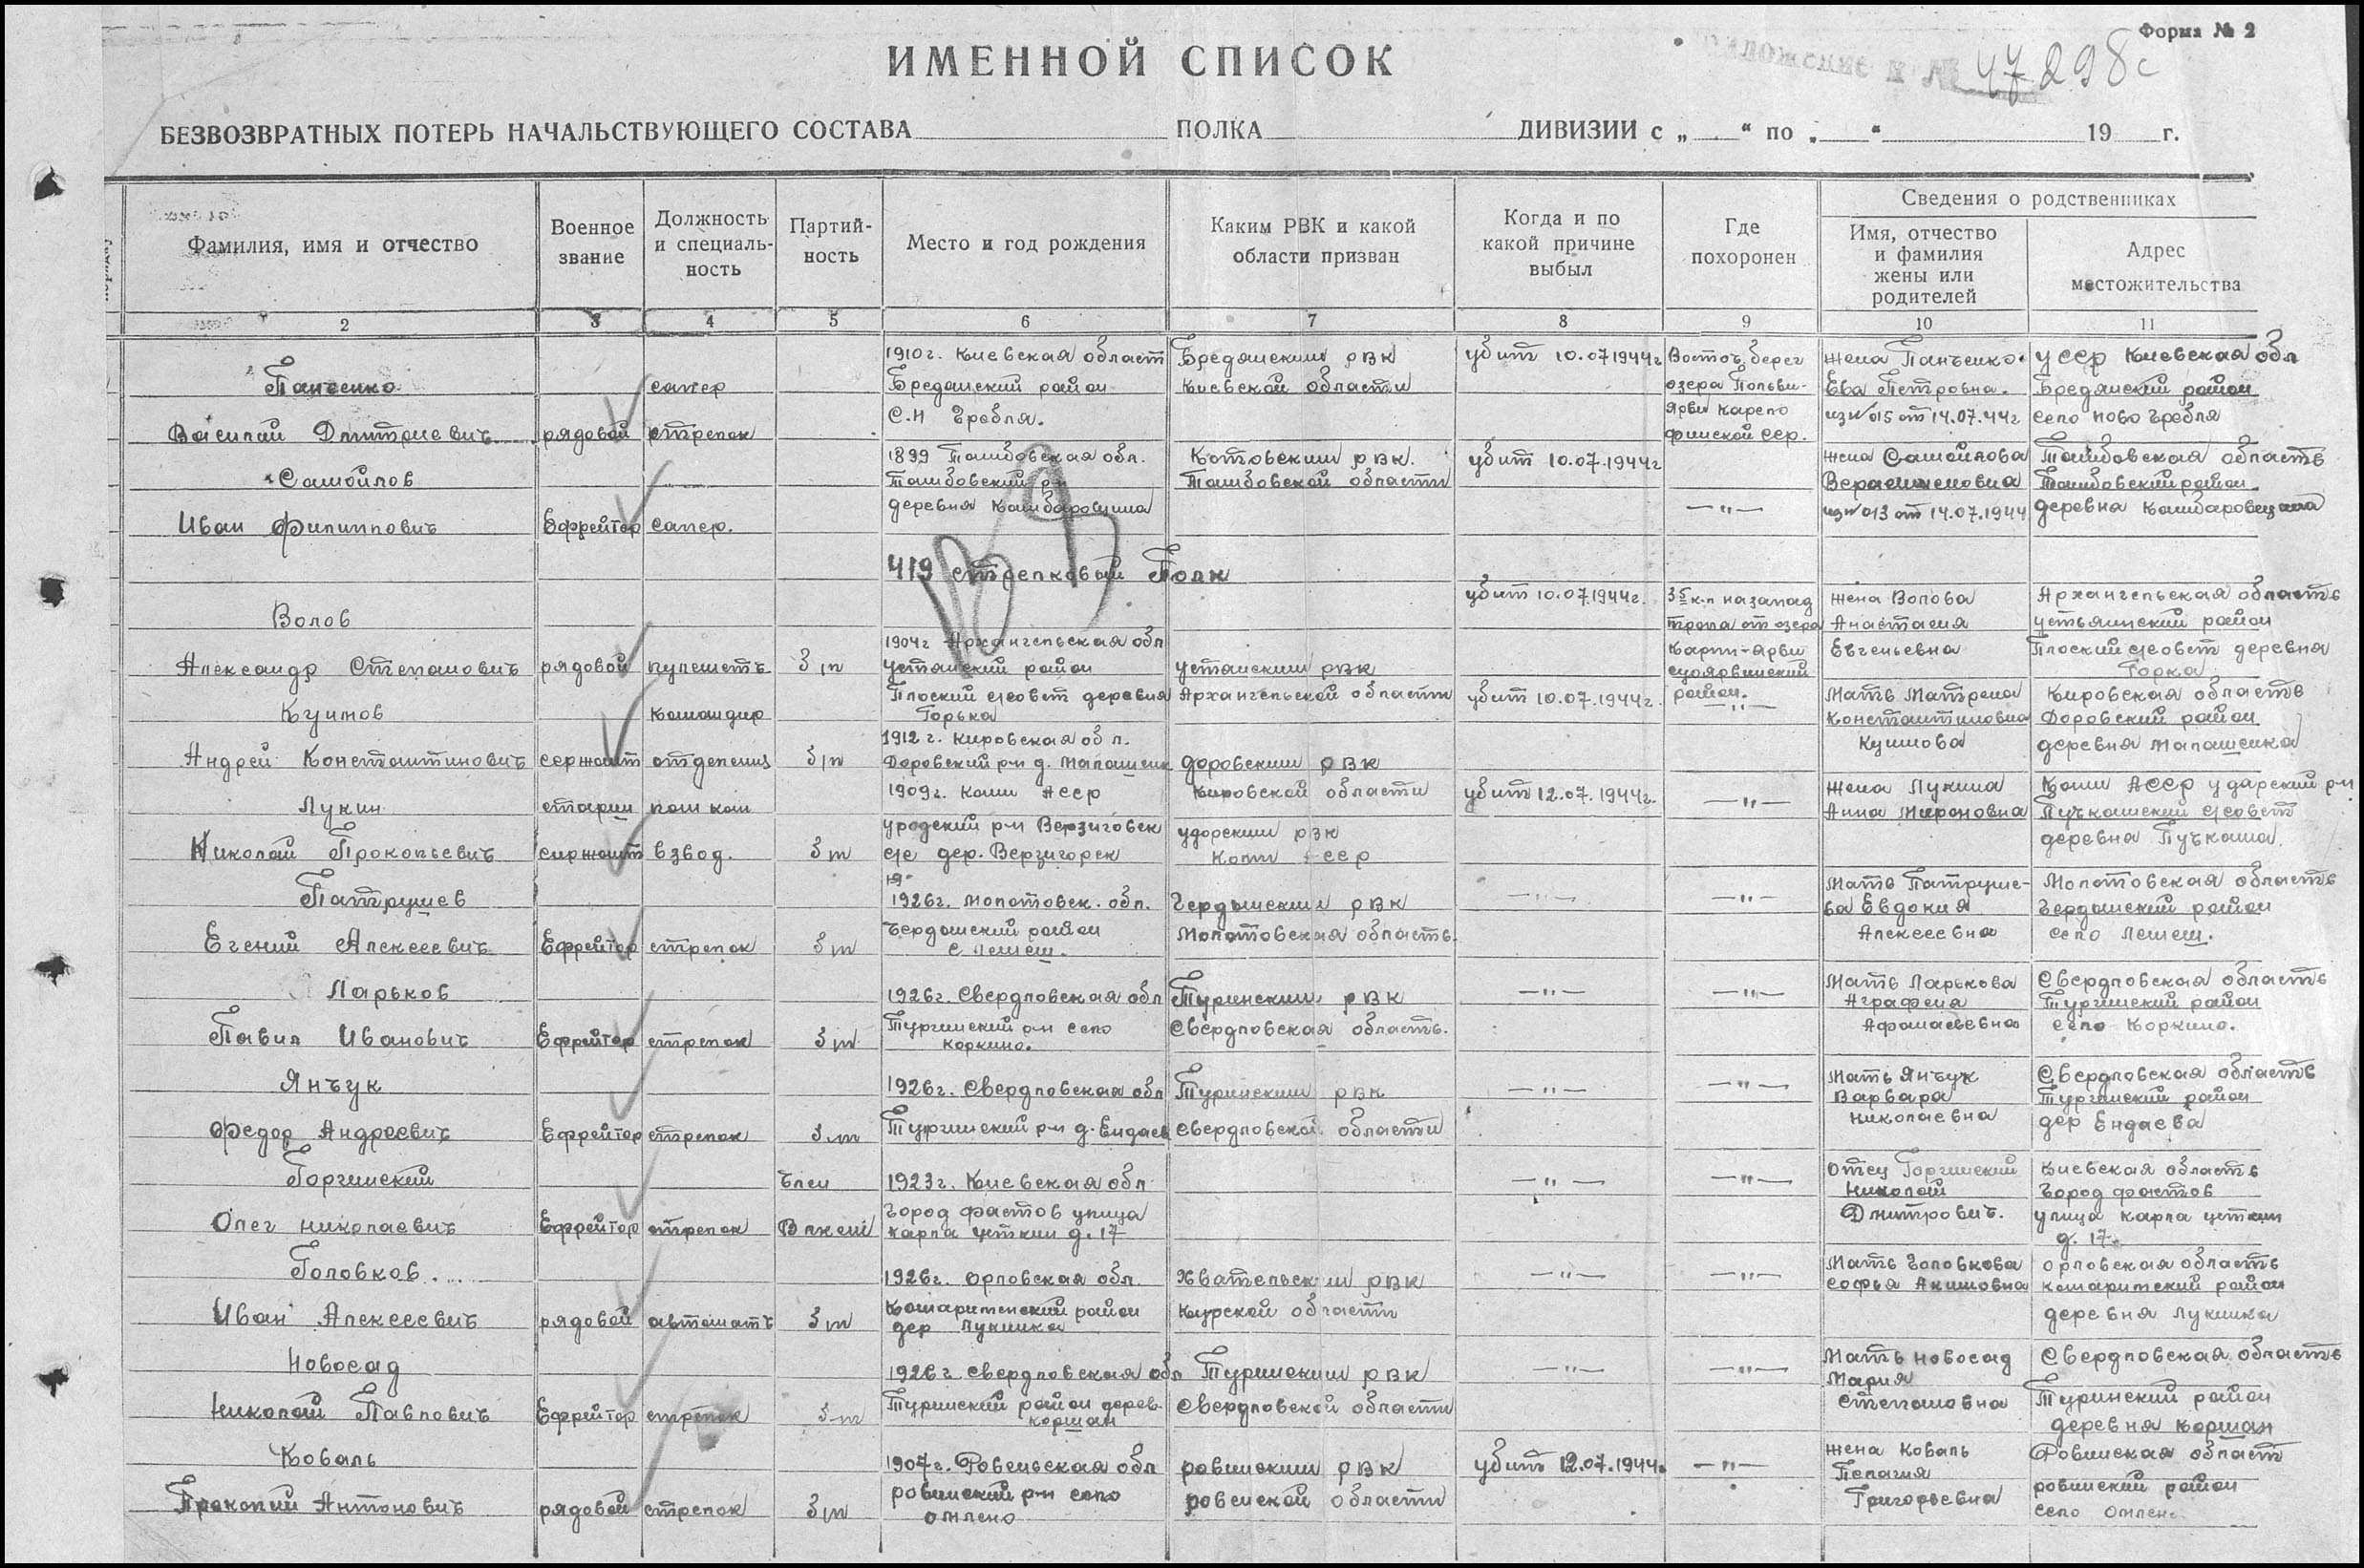 Форма № 2
ИМЕННОЙ СПИСОК
47298с
БЕЗВОЗВРАТНЫХ ПОТЕРЬ НАЧАЛЬСТВУЮЩЕГО СОСТАВА ПОЛКА ДИВИЗИИ с „ “ по „ “ 19 г.
Фамилия, имя и отчество
Военное звание
Должность и специаль-ность
Партий-ность
Место и год рождения
Каким РВК и какой области призван
Когда и по какой причине выбыл
Где похоронен
Сведения о родственниках
Имя, отчество и фамилия жены или родителей
Адрес местожительства
2 3 4 5 6 7 8 9 10 11
1910г. Киевская област Бредянским РВК убит 10.07.1944г Восточ. берег жена Панченко УССР Киевская обл
Панченко сапер Бредянский район Киевской области озера Ева Петровна. Бредянский район
С.Н Гребля. Ярви Карело из№ 015 от 14.07.44г село Ново Гребля
Василий Дмитриевич рядовой стрелок финской сср.
1899 Тамбовская обл. Котовским РВК. убит 10.07.1944г жена Самойлова Тамбовская область
Самойлов Тамбовский рн Тамбовской области Тамбовский район
деревня —"— из№ 013 от 14.07.1944 деревня
Иван Филиппович Ефрейтор сапер.
419 стрелковый Полк
убит 10.07.1944г. на запад жена Волова Архангельская область
Волов тропа от озера Анастасия Устьянский район
1904г Архангельская обл Карпи-ярви Евгеньевна Плоский с/совет деревня
Александр Степанович рядовой пулеметч. б/п Устянский район Устянским РВК Суоярвинский Горка
Плоский с/совет деревня Архангельской области убит 10.07.1944г. район. —"— Мать Матрена Кировская область
командир Горька Константиновна Даровский район
1912г. Кировская обл.
Андрей Константинович сержант отделения б/п Даровский р-н д. Даровским РВК деревня
1909г. Коми АССР Кировской области убит 12.07.1944г. —"— жена Лукина Коми АССР Удорский р-н
Лукин старш пом ком Анна Мироновна с/совет
Удорским РВК деревня
Николай Прокопьевич сержант взвод. б/п с/с дер. Коми АССР
Патрушев 1926г. Молотовск. обл. Чердынским РВК —"— —"— Мать Патруше-ва Евдокия Молотовская область
Чердынский район Молотовская область. Чердынский район
Егений Алексеевич Ефрейтор стрелок б/п с Алексеевна село
Ларьков 1926г. Свердловская обл Туринским РВК —"— —"— Мать Ларькова Свердловская область
Туринский р-н село Свердловская область. Аграфена Туринский район
Павил Иванович Ефрейтор стрелок б/п Коркино. Афанасьевна село Коркино.
Янчук 1926г. Свердловская обл Туринским РВК —"— —"— Мать Янчук Свердловская область
Варвара Туринский район
Федор Андреевич Ефрейтор стрелок б/п Туринский р-н д. Ендаев Свердловской области Николаевна дер Ендаева
Горгинский Член 1923г. Киевская обл —"— —"— Отец Горгинский Киевская область
Николай Город Фастов
Олег Николаевич Ефрейтор стрелок ВЛКСМ Город Фастов улица Дмитрович. улица Карла
Карла д. 17 д. 17
Головков 1926г. Орловская обл. РВК —"— —"— Мать Головкова Орловская область
Софья Акимовна Комаричский район
Иван Алексеевич рядовой автоматч б/п район Курской области деревня Лукинка
дер Лукинка
Новосад 1926г. Свердловская обл Туринским РВК —"— —"— Мать Новосад Свердловская область
Мария
Николай Павлович Ефрейтор стрелок б/п Туринский район дерев. Свердловской области Степановна Туринский район
Коршан деревня Коршан
Коваль 1907г. Ровеньская обл Ровинским РВК убит 12.07.1944г —"— жена Коваль Ровинская област
Ровинский р-н село Ровенской области Пелагия Ровинский район
Прокопий Антонович рядовой стрелок б/п Григорьевна село